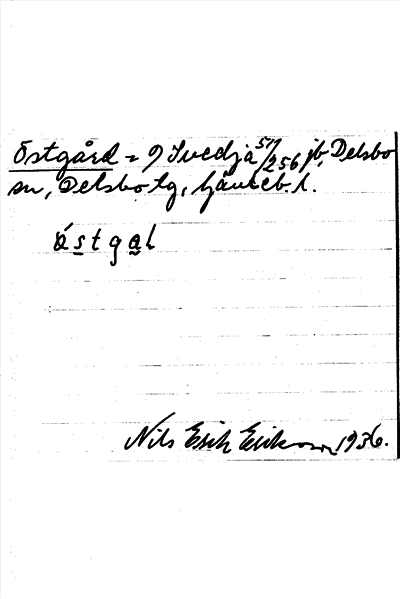 Östgård = 9 Svedja 57/256 jb, Delsbo
sn, Delsbo tg, Gävleb. l.
östgaɩ
Nils Erik Erikson 1936.